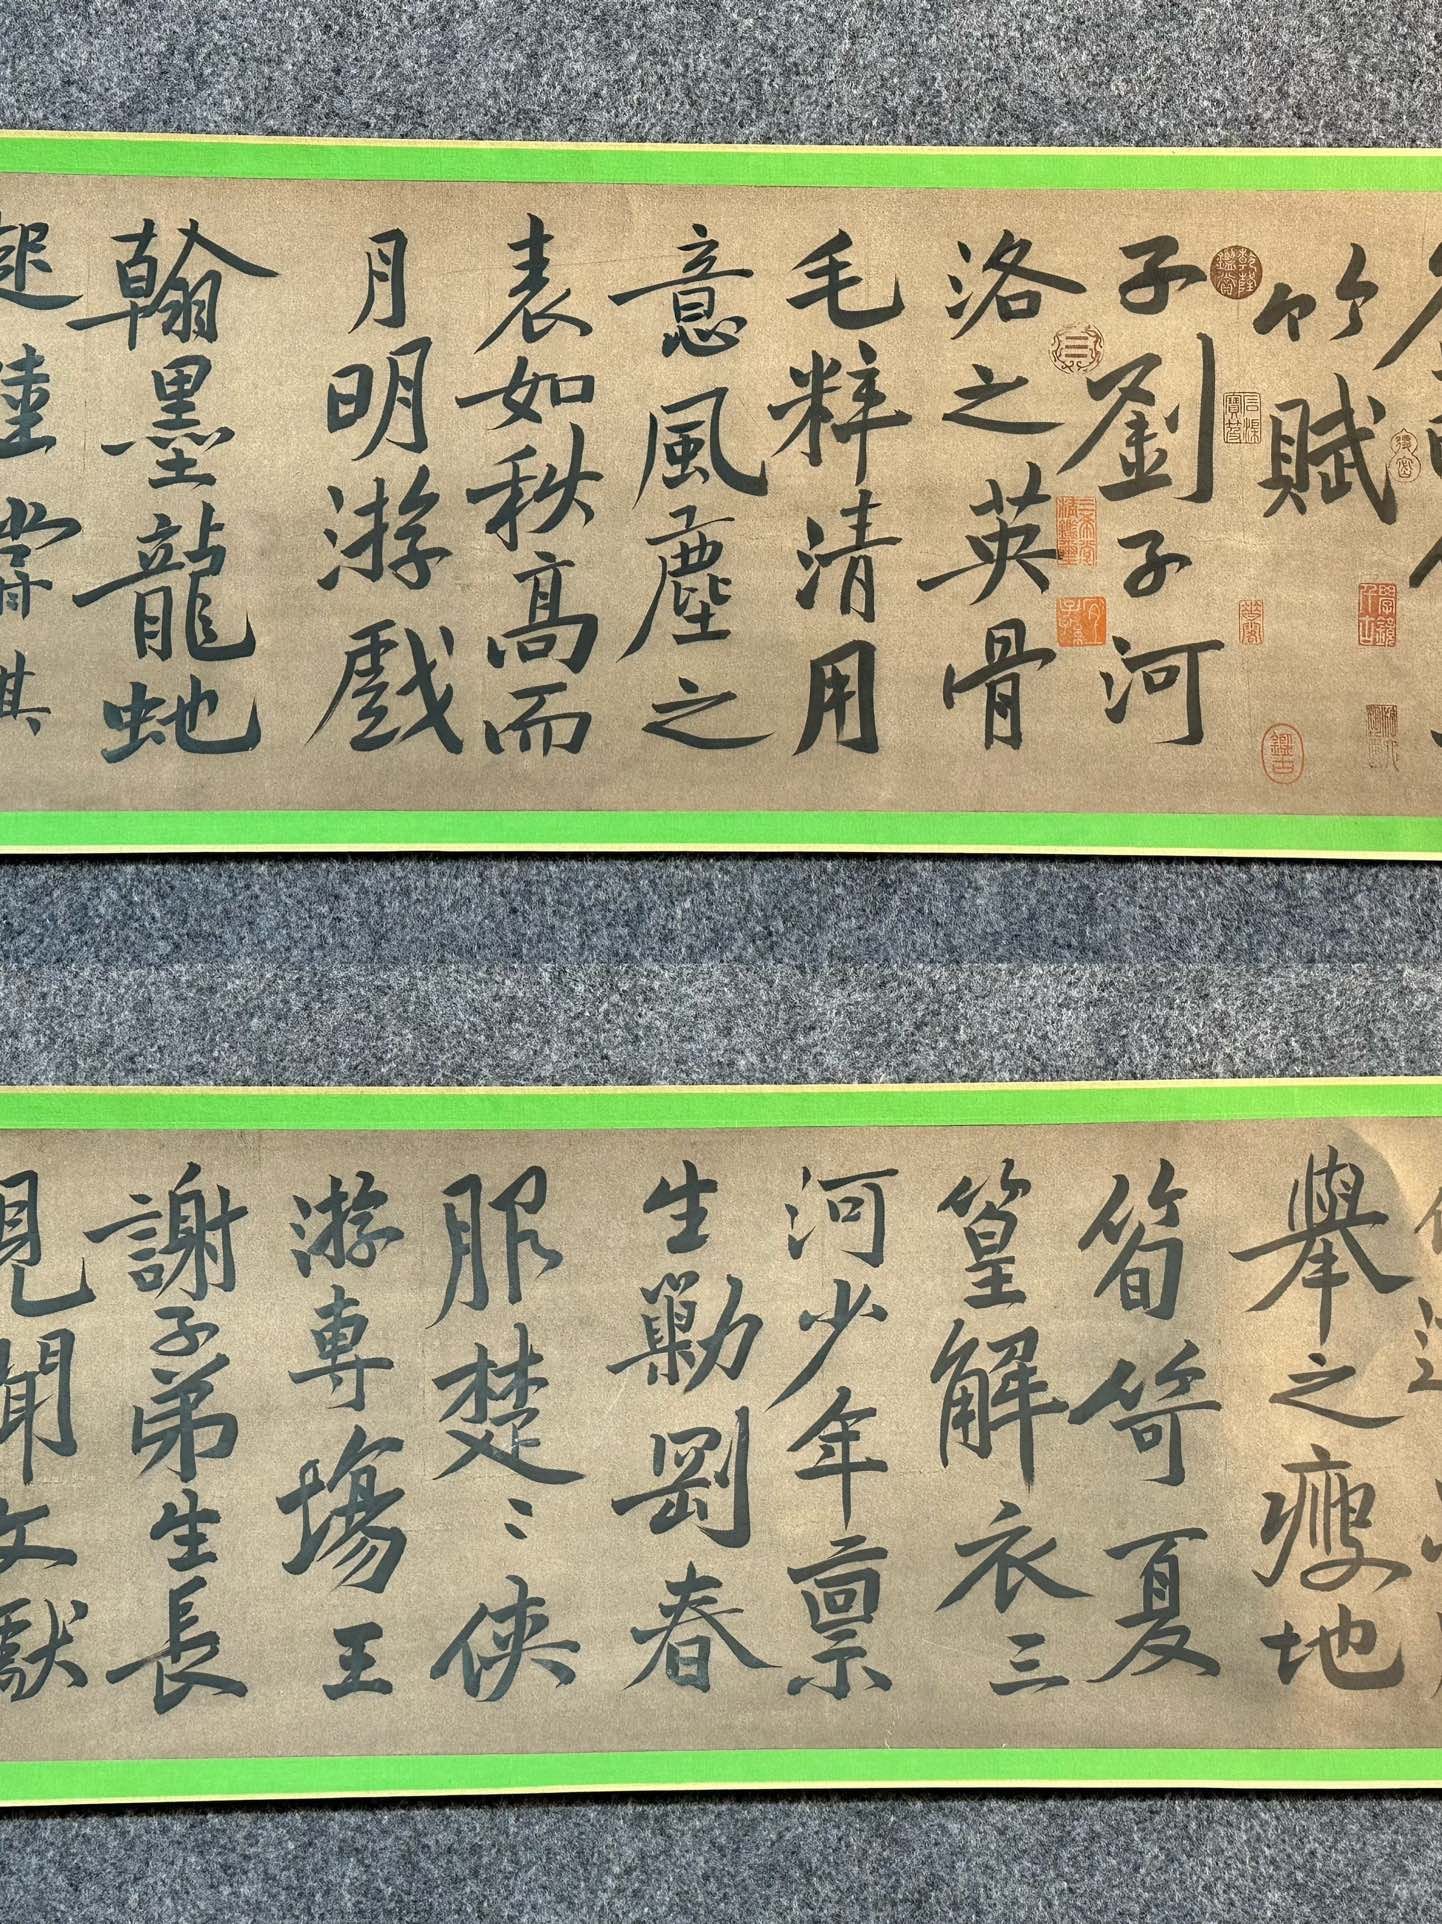 竹賦
子劉子河
洛之英骨
毛粹清用
意風塵之
表如秋高而
月明游戲
翰墨龍虵
舉之瘦地
筍笴夏
篁解衣三
河少年禀
生勦剛春
服楚〻俠
游專場王
謝子弟生長
見聞文獻